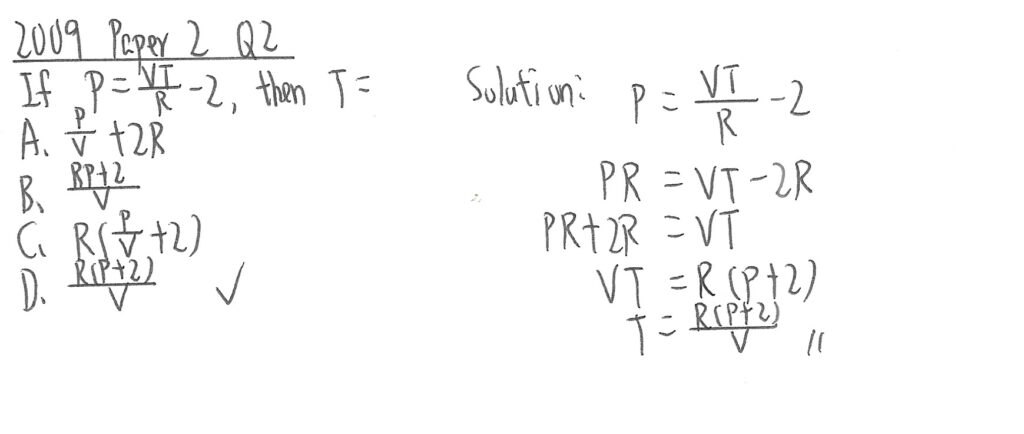 2009 Paper 2 Q2
If P = VT/R - 2, then T =
A. P/V + 2R
B. RP+2/V
C. R(P/V + 2)
D. R(P+2)/V ✓
Solution: P = VT/R - 2
PR = VT - 2R
PR + 2R = VT
VT = R(P+2)
T = R(P+2)/V //